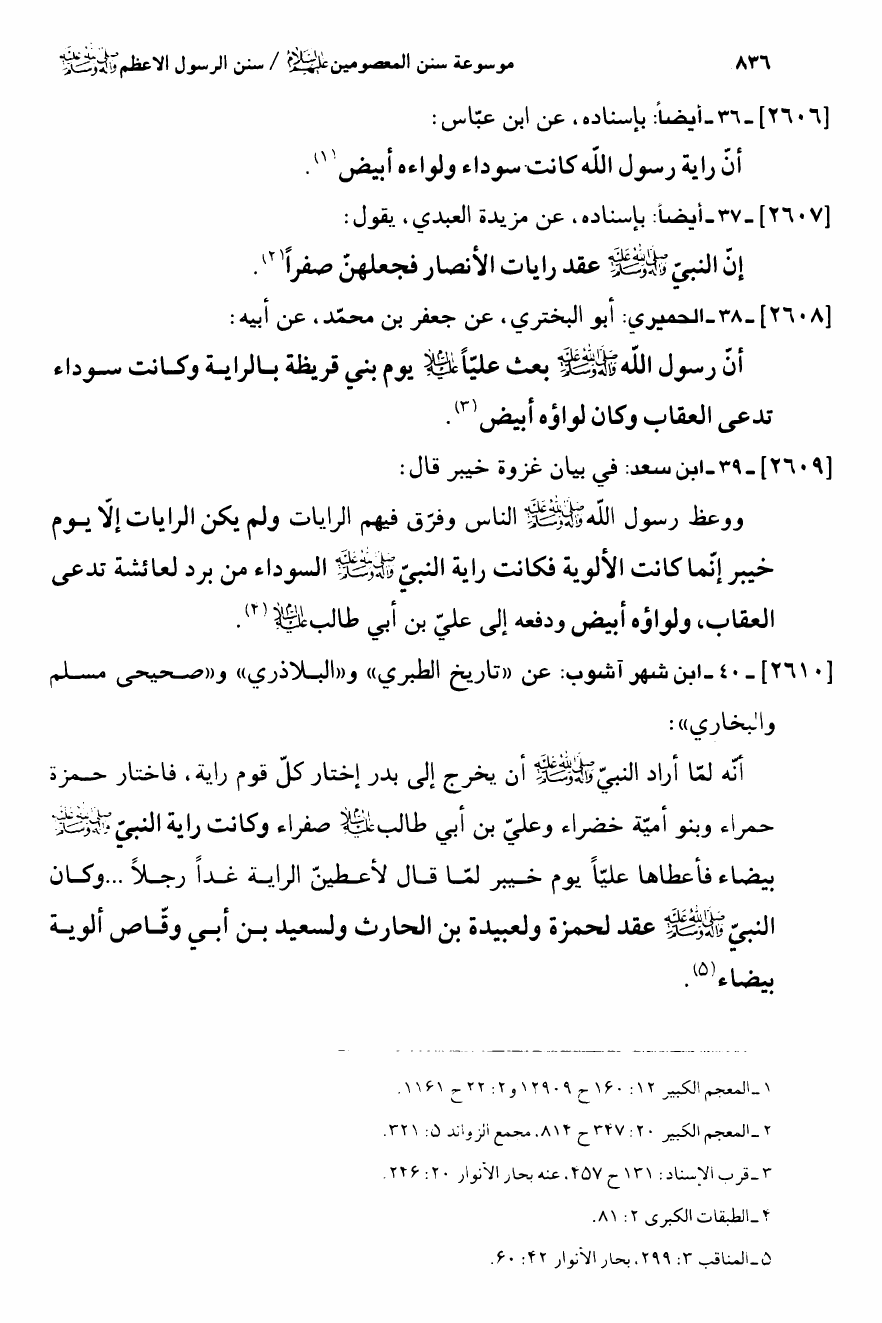 ٨٣٦ موسوعة سنن المعصومين عليهم السلام / سنن الرسول الاعظم ﷺ
[٢٦٠٦] ـ ٣٦ ـ أيضاً: بإسناده، عن ابن عبّاس:
أنّ راية رسول اللّه كانت سوداء ولواءه أبيض (١).
[٢٦٠٧] ـ ٣٧ ـ أيضاً: بإسناده، عن مزيدة العبدي، يقول:
إنّ النبيّ ﷺ عقد رايات الأنصار فجعلهنّ صفراً (٢).
[٢٦٠٨] ـ ٣٨ ـ الحميري: أبو البختري، عن جعفر بن محمّد، عن أبيه:
أنّ رسول اللّه ﷺ بعث عليّاً عليه السلام يوم بني قريظة بالراية وكانت سوداء
تدعى العقاب وكان لواؤه أبيض (٣).
[٢٦٠٩] ـ ٣٩ ـ ابن سعد: في بيان غزوة خيبر قال:
ووعظ رسول اللّه ﷺ الناس وفرّق فيهم الرايات ولم يكن الرايات إلّا يوم
خيبر إنّما كانت الألوية فكانت راية النبيّ ﷺ السوداء من برد لعائشة تدعى
العقاب، ولواؤه أبيض ودفعه إلى عليّ بن أبي طالب عليه السلام (۴).
[٢٦١٠] ـ ٤٠ ـ ابن شهر آشوب: عن «تاريخ الطبري» و«البلاذري» و«صحيحى مسلم
والبخاري»:
أنّه لمّا أراد النبيّ ﷺ أن يخرج إلى بدر إختار كلّ قوم راية، فاختار حمزة
حمراء وبنو أميّة خضراء وعليّ بن أبي طالب عليه السلام صفراء وكانت راية النبيّ ﷺ
بيضاء فأعطاها عليّاً يوم خيبر لمّا قال لأعطينّ الراية غداً رجلاً ...وكان
النبيّ ﷺ عقد لحمزة ولعبيدة بن الحارث ولسعيد بن أبي وقّاص ألوية
بيضاء (۵).
١ ـ المعجم الكبير ١٢: ١۶٠ ح ١٢٩٠٩ و٢: ٢٢ ح ١١۶١.
٢ ـ المعجم الكبير ٢٠: ٣۴٧ ح ٨١۴، مجمع الزوائد ۵: ٣٢١.
٣ ـ قرب الإسناد: ١٣١ ح ۴۵٧، عنه بحار الأنوار ٢٠: ٢۴۶.
۴ ـ الطبقات الكبرى ٢: ٨١.
۵ ـ المناقب ٣: ٢٩٩، بحار الأنوار ۴٢: ۶٠.